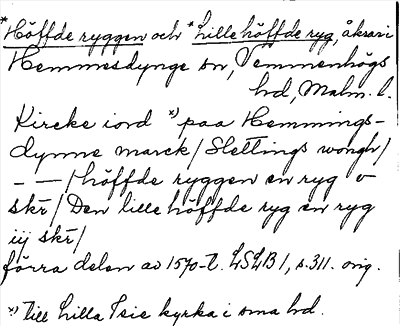 *Höffde ryggen och *Lille höffde ryg, åkrar i
Hemmesdynge sn, Vemmenhögs
hd, Malm. l.
Kircke iord *) paa Hemmings-
dynne marck / Slettings wongh /
- — / höffde ryggen en ryg v
skr / Den lille höffde ryg en ryg
iij skr /
förra delen av 1570-t. LSLB 1, s. 311. orig.
*) till Lilla Isie kyrka i sma hd.